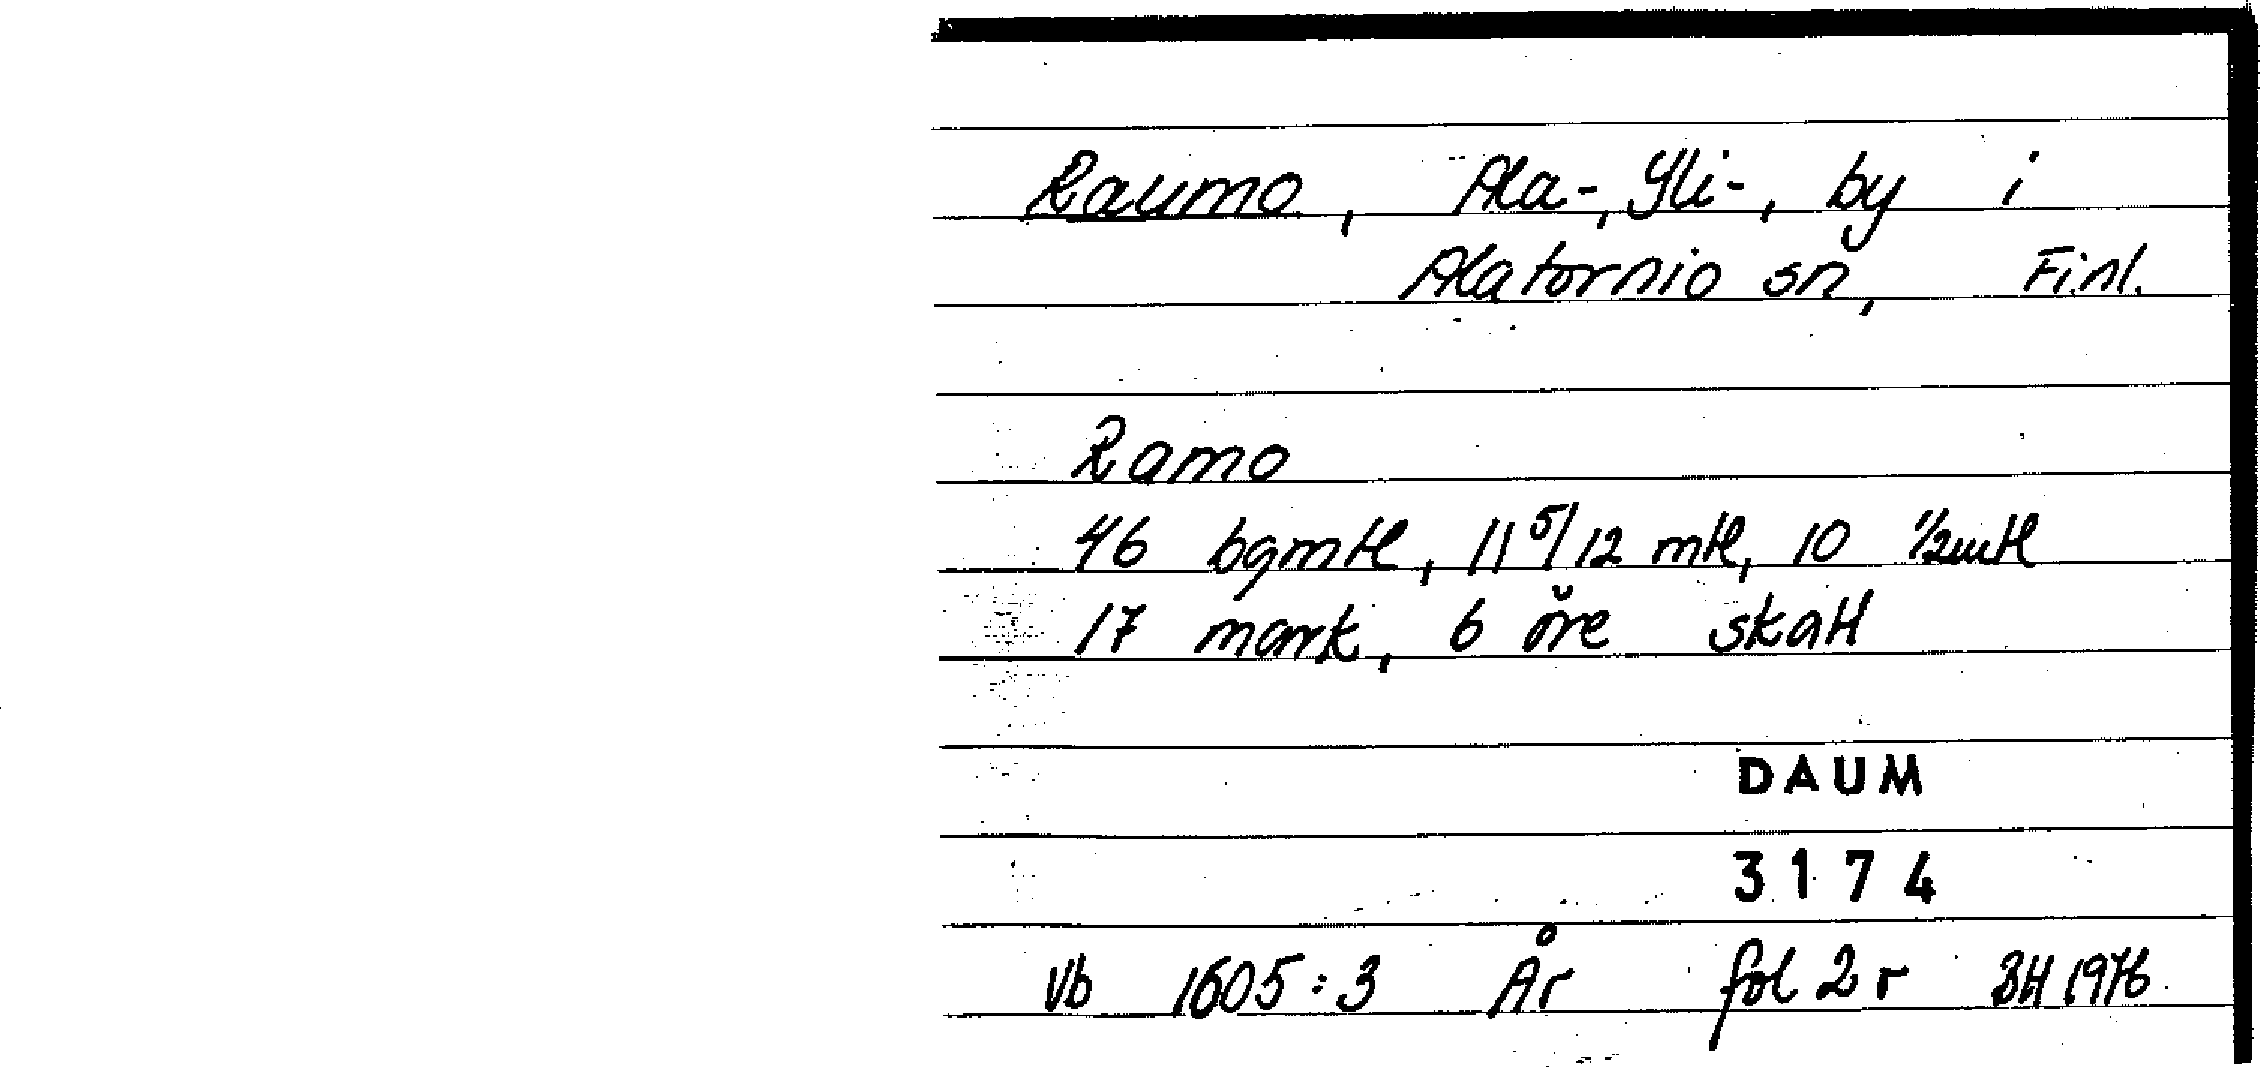 Raumo, Ala-, Yli-, by i
Alatornio sn, Finl.
Ramo
46 bgmtl, 11 5/12 mtl, 10 1/2mtl
17 mark, 6 öre skatt
DAUM
3174
Vb 1605:3 År fol 2 r BH 1976